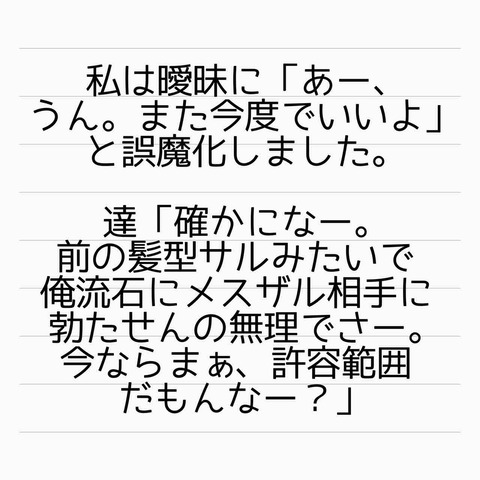 私は曖昧に「あー、
うん。また今度でいいよ」
と誤魔化しました。
達「確かになー。
前の髪型サルみたいで
俺流石にメスザル相手に
勃たせんの無理でさー。
今ならまぁ、許容範囲
だもんなー？」